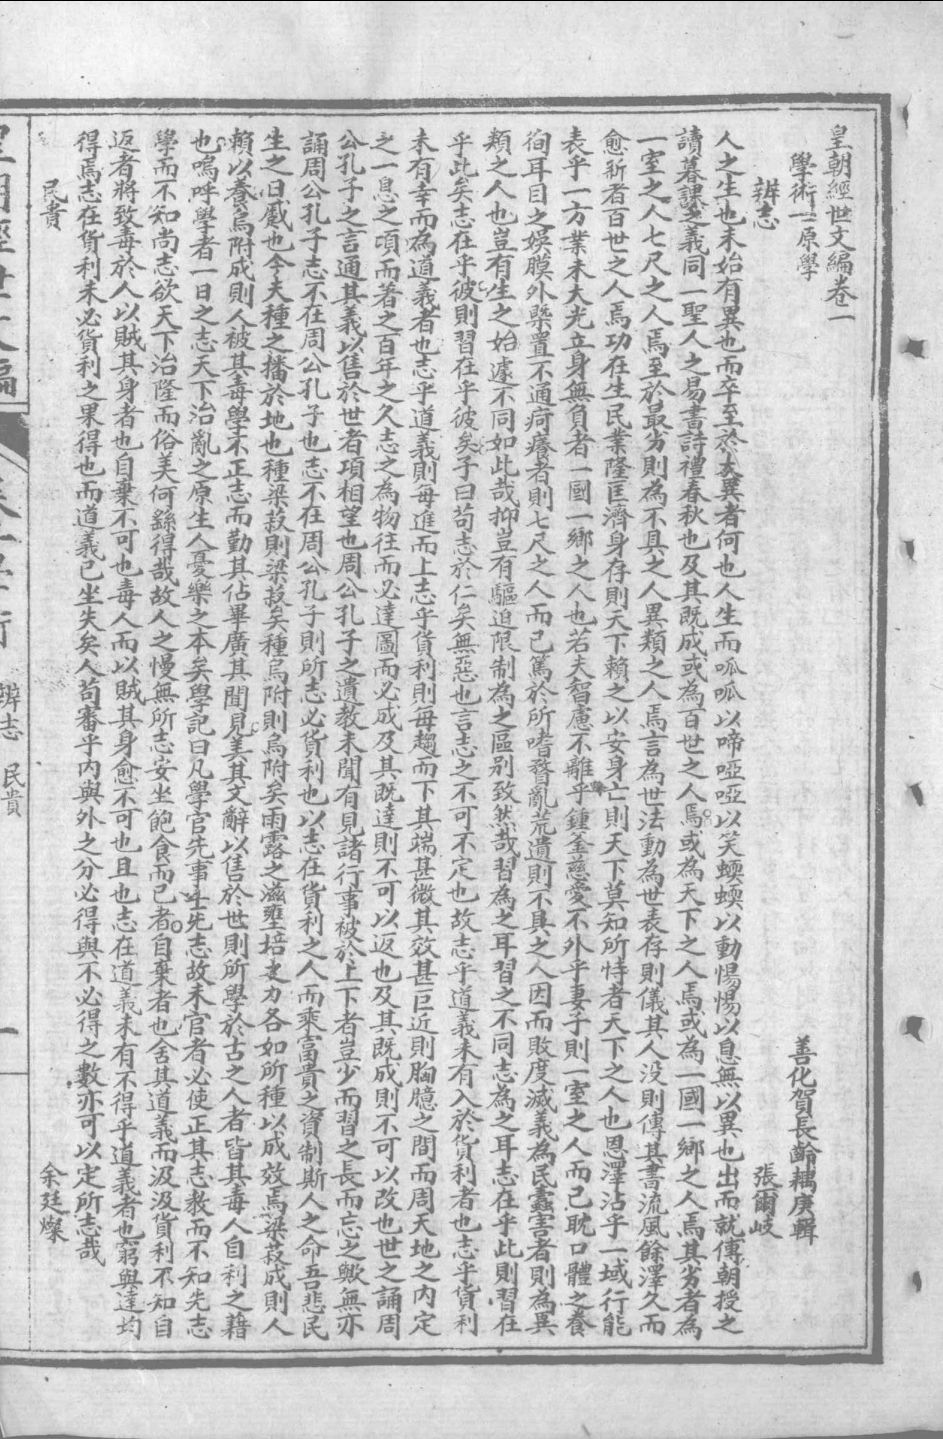 皇朝經世文編卷一
學術一原學
善化賀長齡耦庚輯
辨志
張爾岐
人之生也未始有異也而卒至於大異者何也人生而呱呱以啼啞啞以笑蝡蝡以動惕惕以息無以異也出而就傅朝授之
讀暮課之義同一聖人之易書詩禮春秋也及其既成或為百世之人焉或為天下之人焉或為一國一鄉之人焉其劣者為
一室之人七尺之人焉至於最劣則為不具之人異類之人焉言為世法動為世表存則儀其人没則傳其書流風餘澤久而
愈新者百世之人焉功在生民業隆匡濟身存則天下賴之以安身亡則天下莫知所恃者天下之人也恩澤沾乎一域行能
表乎一方業未大光立身無負者一國一鄉之人也若夫智慮不離乎鍾釜慈愛不外乎妻子則一室之人而已耽口體之養
徇耳目之娱膜外槩置不通疴癢者則七尺之人而已篤於所嗜瞀亂荒遺則不具之人因而敗度滅義為民蠹害者則為異
類之人也豈有生之始遽不同如此哉抑豈有驅迫限制為之區别致然哉習為之耳習之不同志為之耳志在乎此則習在
乎此矣志在乎彼則習在乎彼矣子曰苟志於仁矣無惡也言志之不可不定也故志乎道義未有入於貨利者也志乎貨利
未有幸而為道義者也志乎道義則每進而上志乎貨利則每趨而下其端甚微其效甚巨近則胸臆之間而周天地之内定
之一息之頃而著之百年之久志之為物往而必達圖而必成及其既達則不可以返也及其既成則不可以改也世之誦周
公孔子之言通其義以售於世者項相望也周公孔子之遺教未聞有見諸行事被於上下者豈少而習之長而忘之歟無亦
誦周公孔子志不在周公孔子也志不在周公孔子則所志必貨利也以志在貨利之人而乘富貴之資制斯人之命吾悲民
生之日蹙也今夫種之播於地也種粱菽則粱菽矣種烏附則烏附矣雨露之滋壅培之力各如所種以成效焉粱菽成則人
賴以養烏附成則人被其毒學不正志而勤其佔畢廣其聞見美其文辭以售於世則所學於古之人者皆其毒人自利之藉
也嗚呼學者一日之志天下治亂之原生人憂樂之本矣學記曰凡學官先事士先志故未官者必使正其志教而不知先志
學而不知尚志欲天下治隆而俗美何繇得哉故人之慢無所志安坐飽食而已者自棄者也舍其道義而汲汲貨利不知自
返者將致毒於人以賊其身者也自棄不可也毒人而以賊其身愈不可也且也志在道義未有不得乎道義者也窮與達均
得焉志在貨利未必貨利之果得也而道義已坐失矣人苟審乎内與外之分必得與不必得之數亦可以定所志哉
民貴
余廷燦
皇朝經世文編
卷一學術
辨志
民貴
一